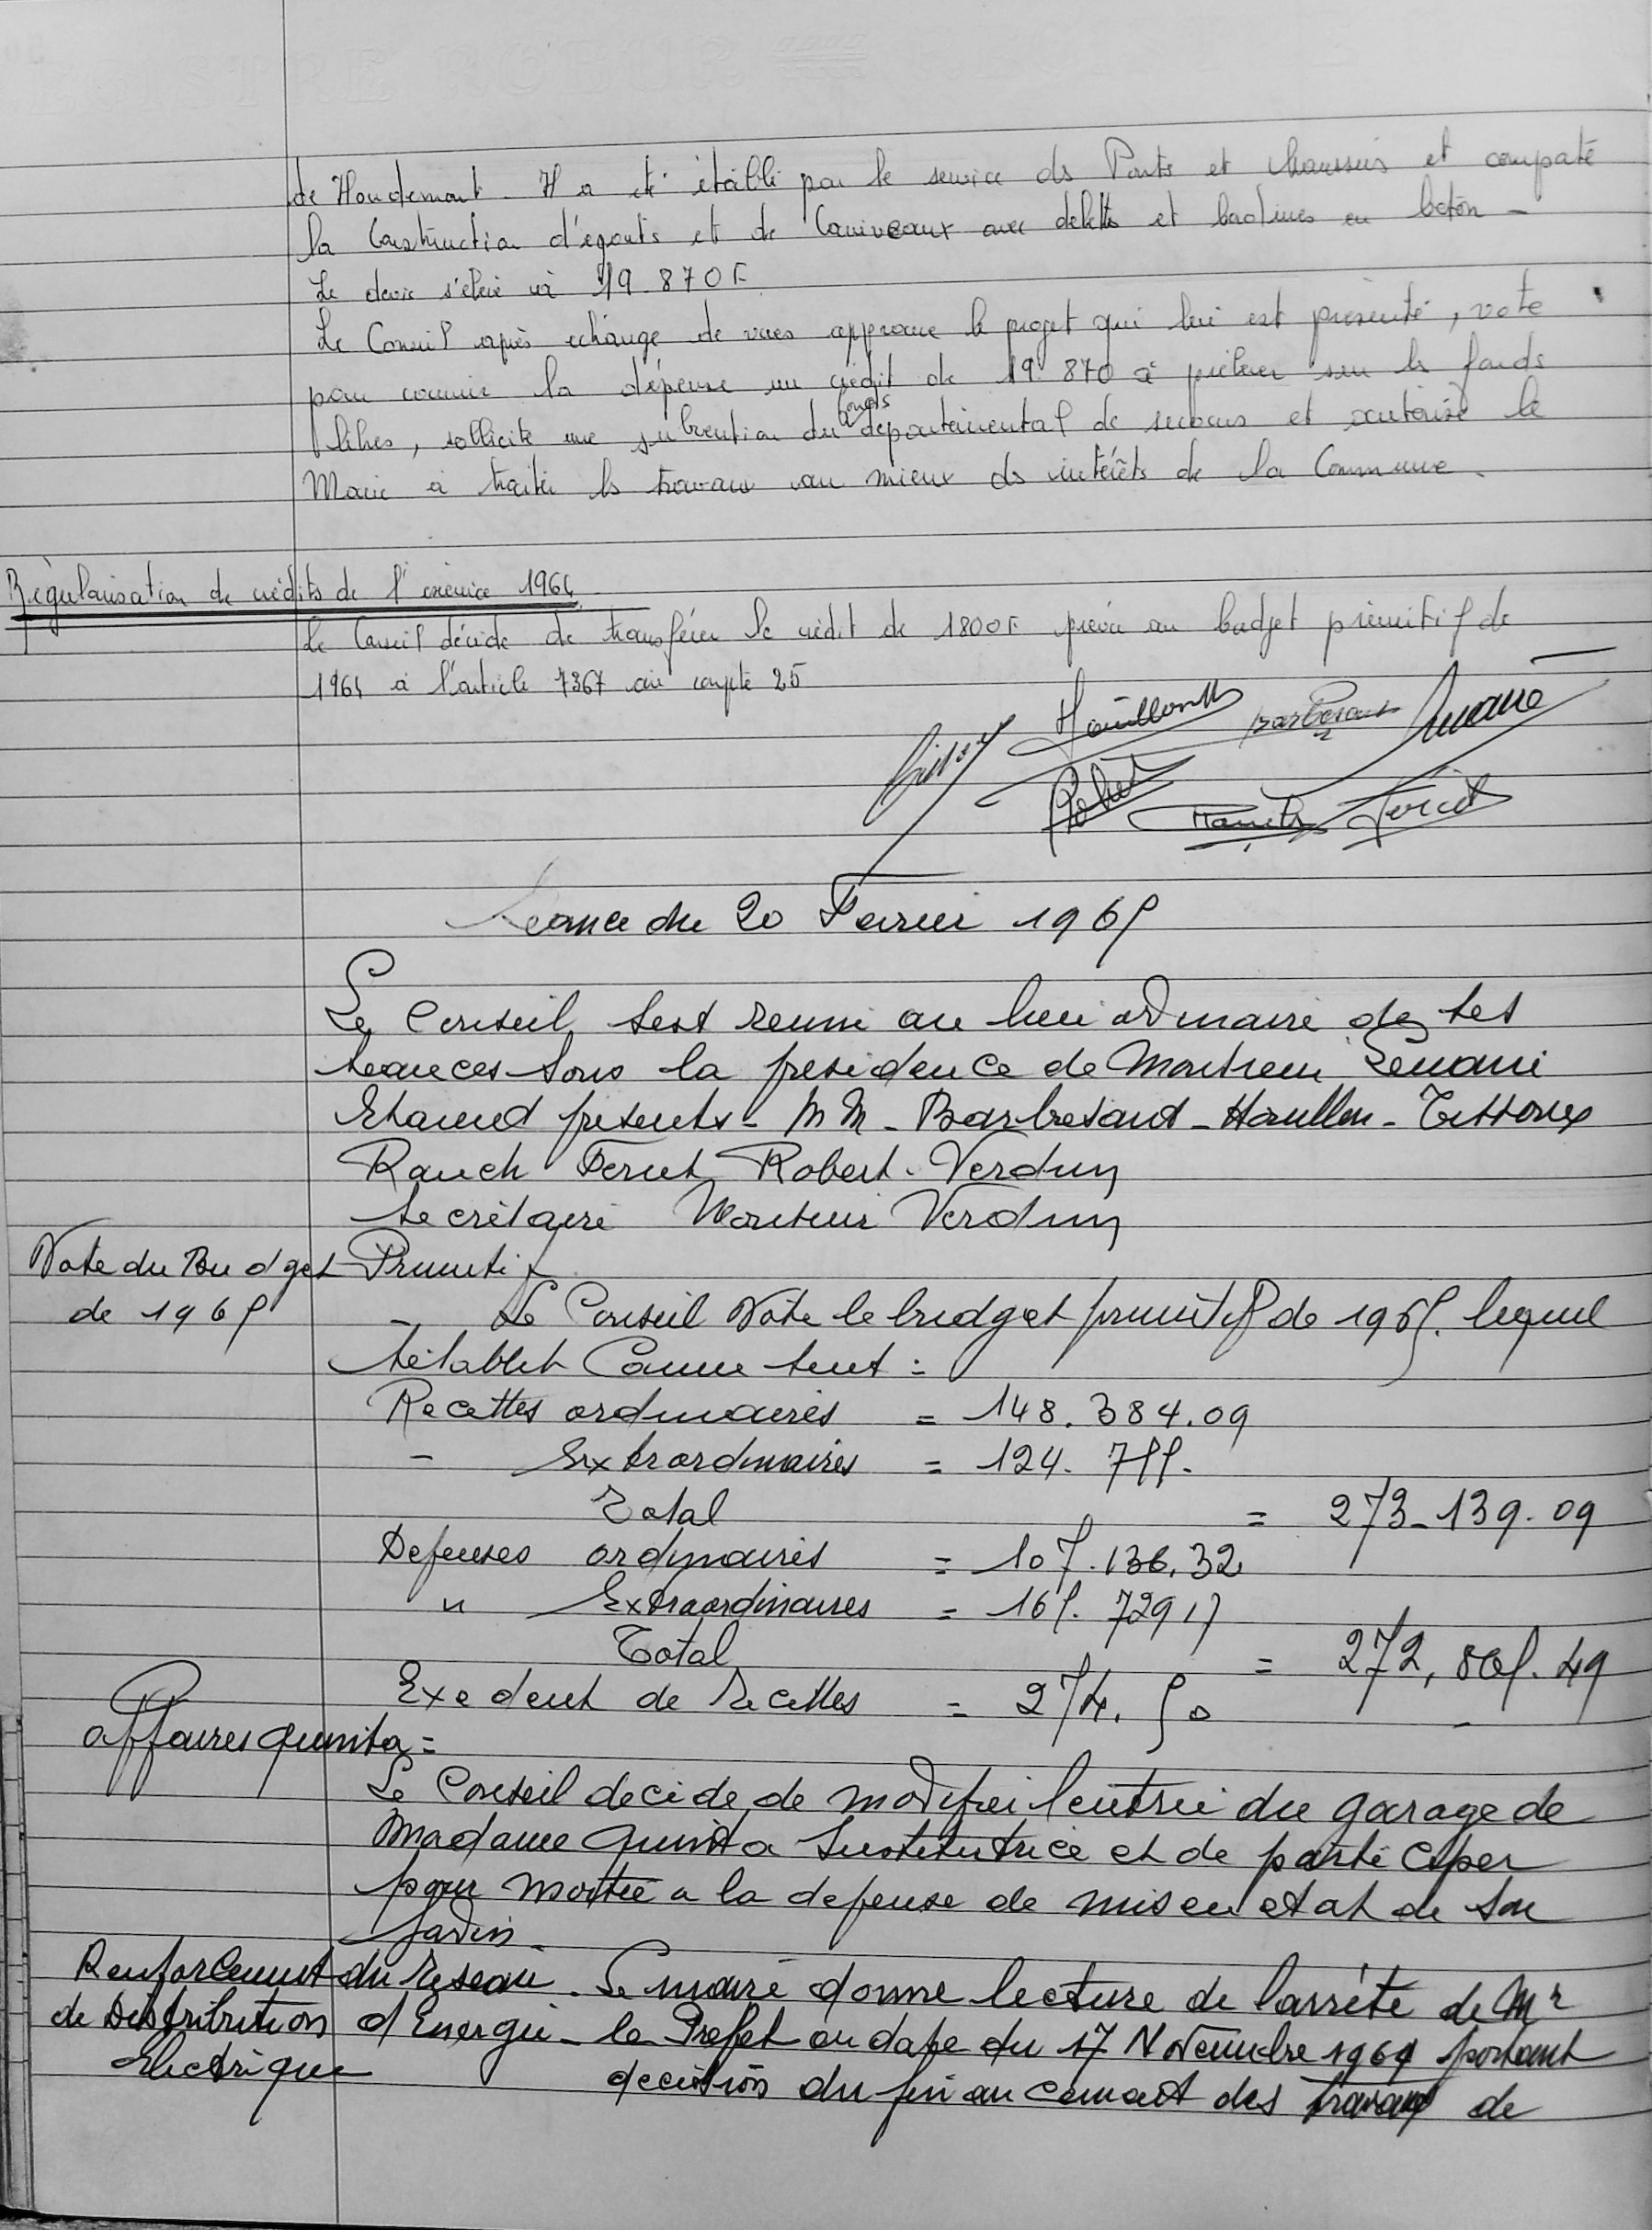 de Houdemont. Il a été établi par le service ds Ponts et chaussées et comporte
la Construction d'égouts et de Caniveaux avec et bordures en béton -
Le devis s'élève à 19.870 F
Le Conseil après echange de vues approuve le projet qui lui est présenté, vote
pour couvrir la dépense un crédit de 19.870 à prélever sur ls fonds
libres, sollicite une subvention du fonds départemental de secours et autorise le
Maire à traiter ls travaux au mieux ds intérêts de la Commune.
Régularisation de crédits de l'exercice 1964
Le Conseil décide de transférer le crédit de 1800 F prévu au budget primitif de
1964 à l'article 7367 au compte 25
Séance du 20 Fevrier 1965
Le Conseil sest reuni au lieu ordinaire de ses
seances sous la presidence de Monsieur Lenoire
Etaient presents - MM - Barbesant - Houillon - Tissoux
Rauch Feriet Robert - Verdun
Secrétaire Monsieur Verdun
Vote du Budget Primitif
de 1965
- Le Conseil Vote le budget primitif de 1965. lequel
sétablit Comme suit :
Recettes ordinaires = 148.384.09
- Extraordinaires = 124.755.
Total = 273-139.09
Depenses ordinaires = 107.136.32
" Extraordinaires = 165.729 17
Total = 272,865.49
Exedent de recettes = 274.50
affaires Quinta =
Le Conseil decide de modifier lentrée du garage de
Madame Quinta Institutrice et de participer
pour moitié a la depense de mise en etat de son
Jardin -
Renforcement du reseau - Le maire donne lecture de larrêté de Mr
de Distribution d'Energie - le Prefet en date du 17 Novembre 1964 portant
Electrique decision du financement des travaux de